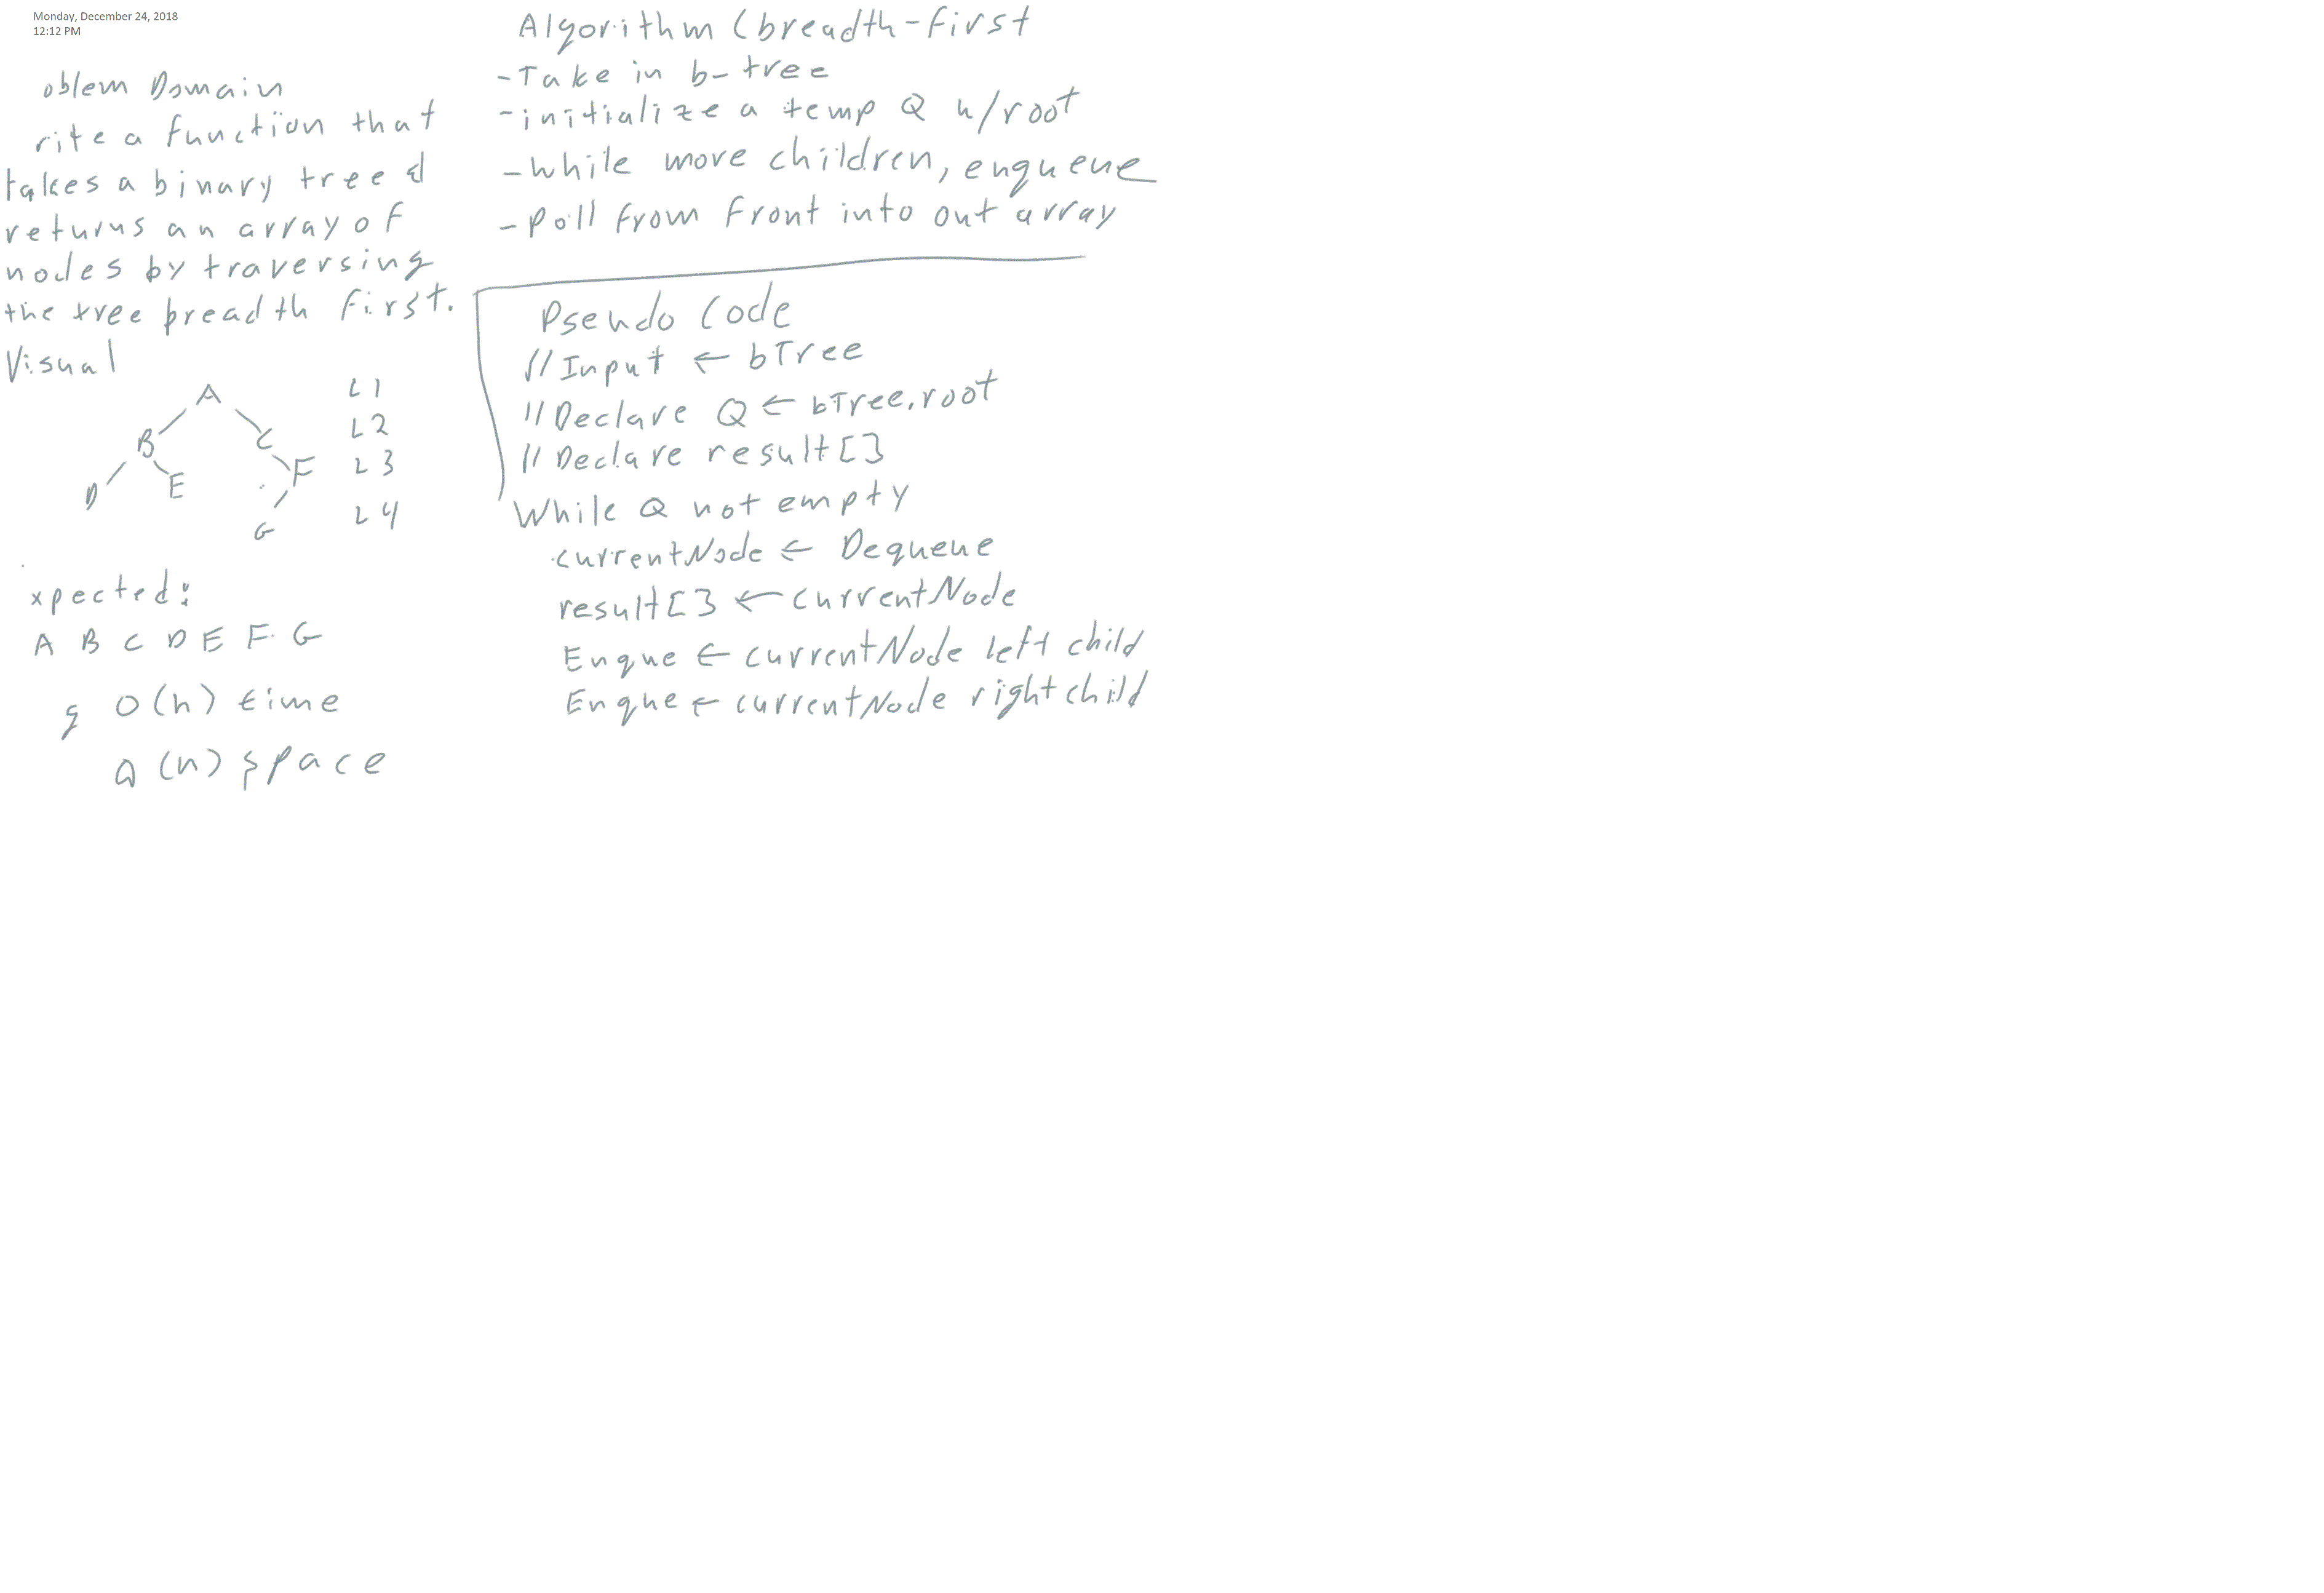 Monday, December 24, 2018
12:12 PM
oblem Domain
rite a function that
takes a binary tree &
returns an array of
nodes by traversing
the tree breadth first.
Visual
A
B
C
D
E
F
G
L1
L2
L3
L4
xpected:
A B C D E F G
O(n) time
O(n) space
Algorithm (breadth-first
-Take in b-tree
-initialize a temp Q w/root
-while more children, enqueue
-Poll from front into out array
Pseudo Code
//Input ← bTree
//Declare Q ← bTree.root
//Declare result[]
While Q not empty
currentNode ← Dequeue
result[] ← currentNode
Enque ← currentNode left child
Enque ← currentNode right child